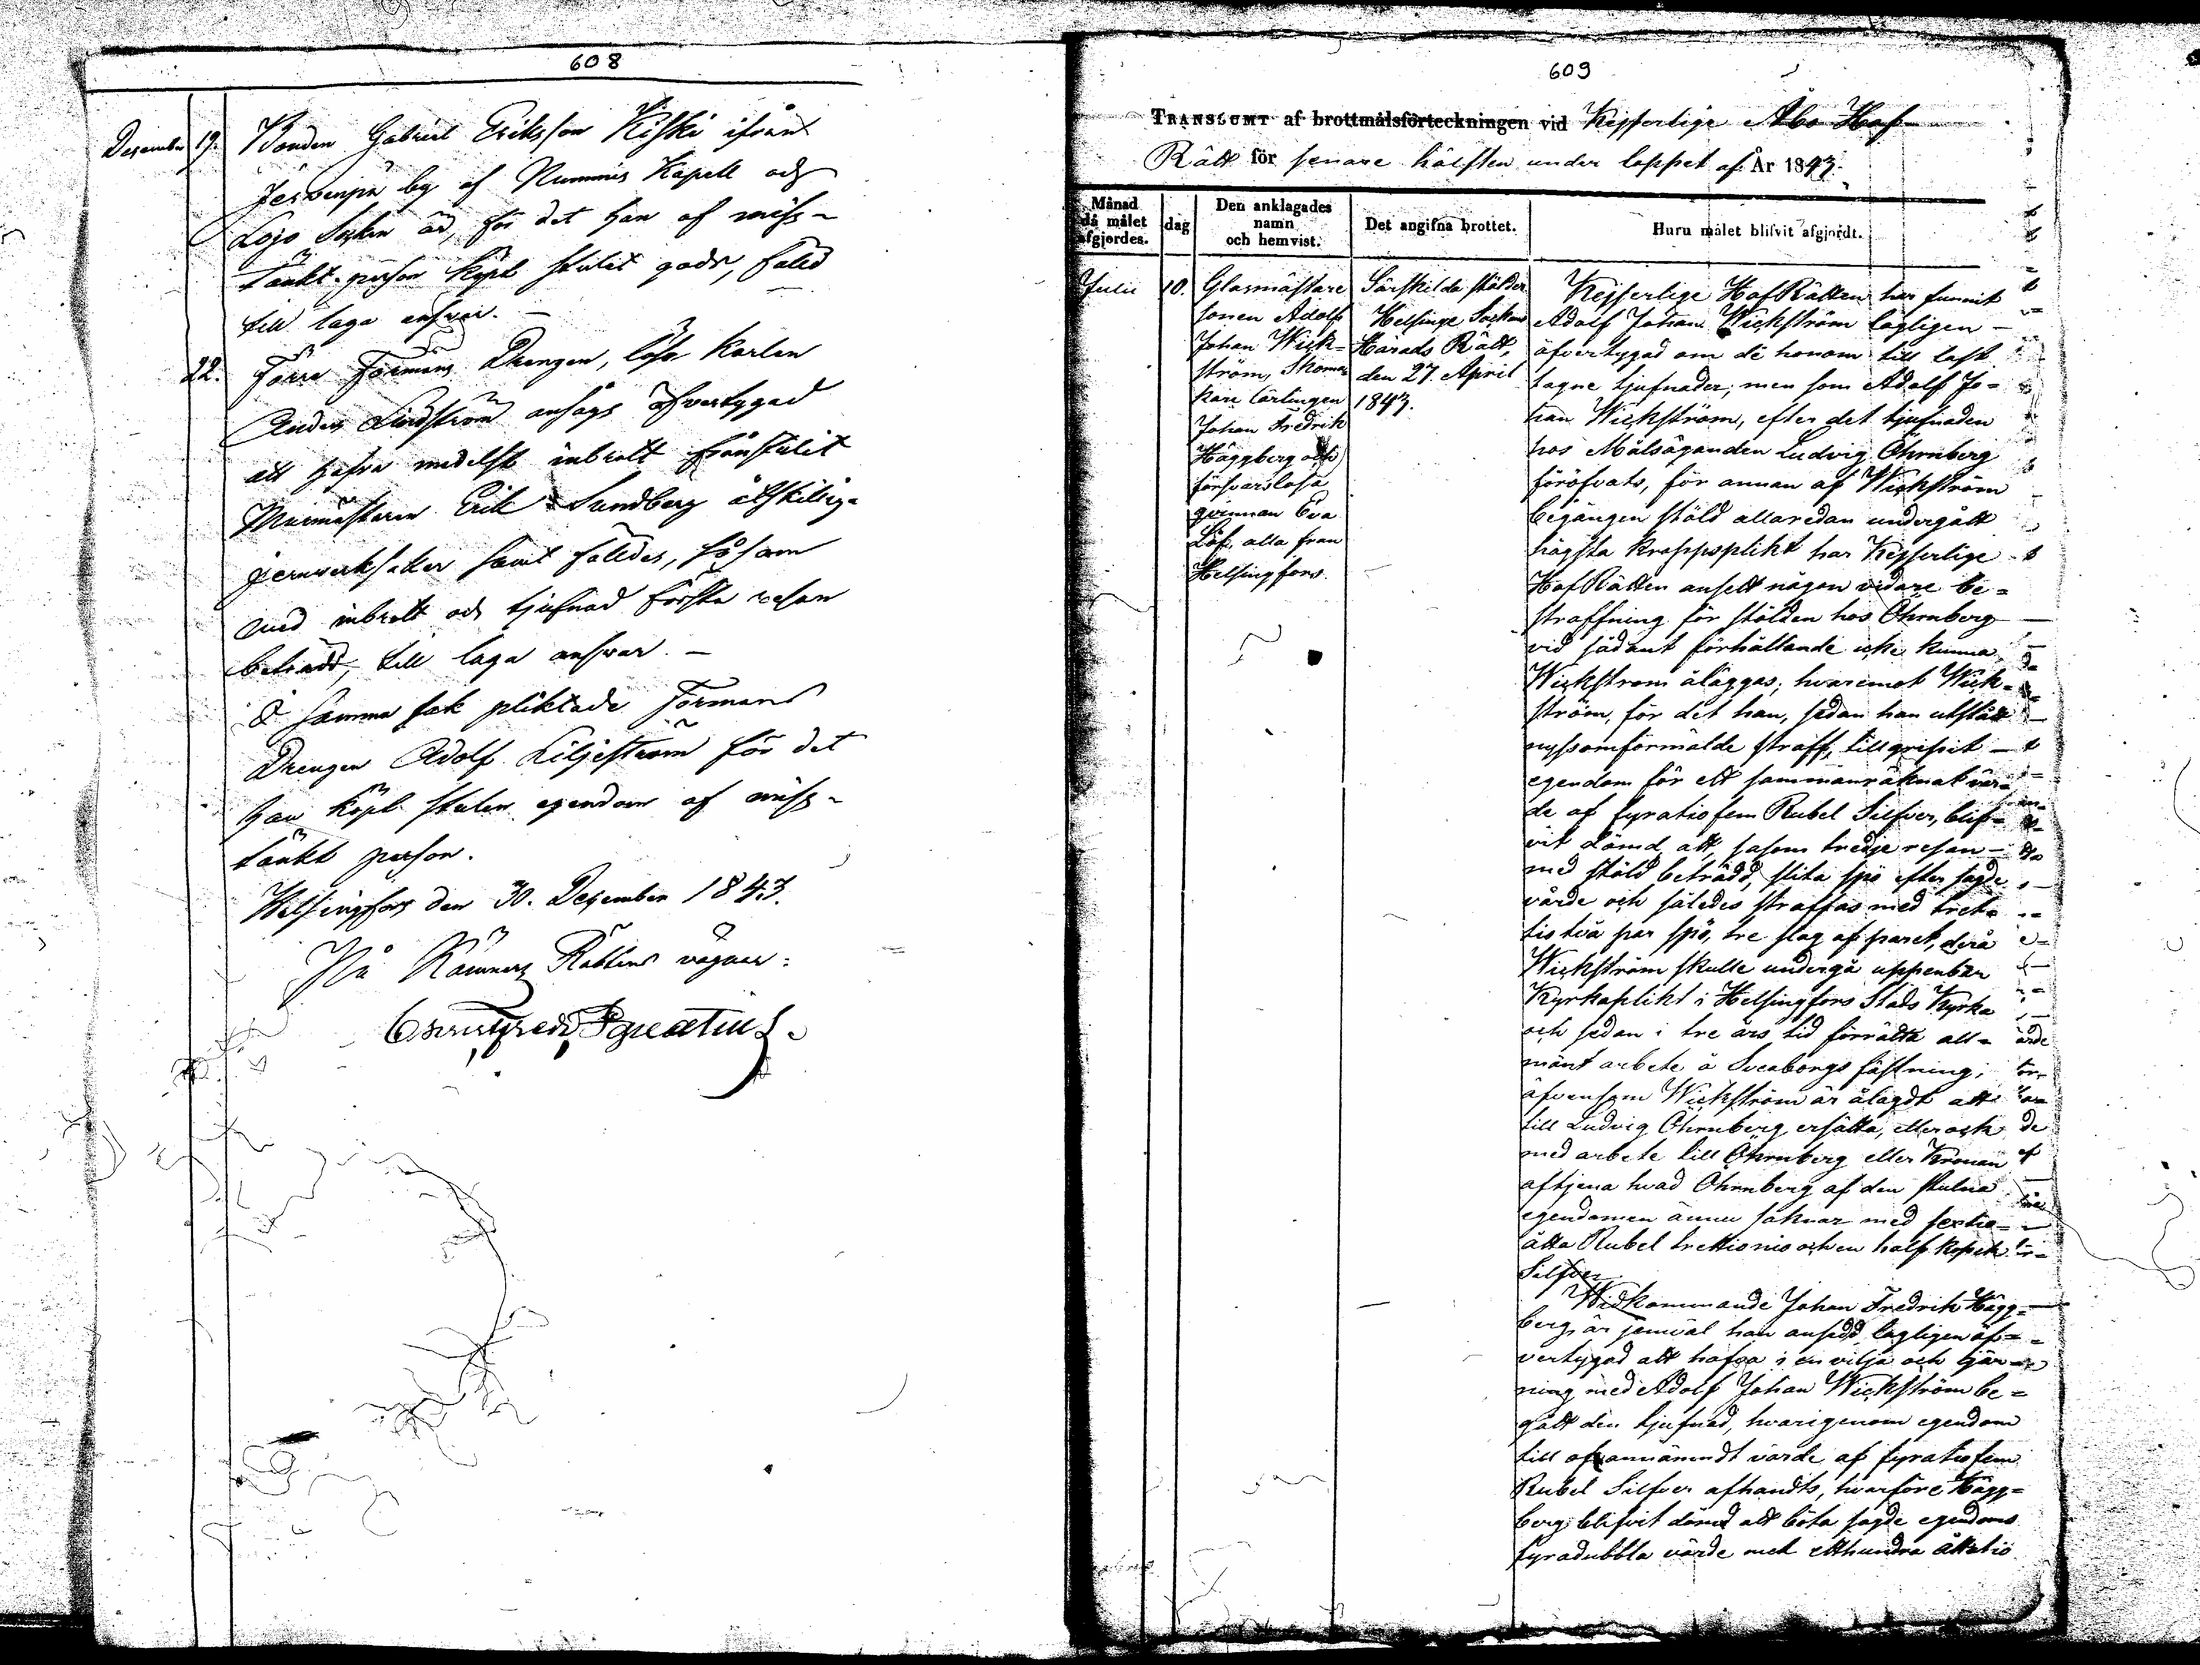 608
December 19. Bonden Gabriel Eriksson Kiski ifrån
Jervenpä by af Nummis Kapell och
Lojo Socken är, för det han af miss-
tänkt person köpt stulet gods, fäld
till laga ansvar. —
22. Förre Formans Drengen, löse Karlen
Anders Lindström ansågs öfvertygad
att hafva medelst inbrott frånstulit
Murmästaren Erik Sundberg åtskillig-
jernverksaker samt fälldes, såsom
med inbrott och tjufnad första resan
beträdd, till laga ansvar. —
I samma sak pliktade Formans
Drengen Adolf Liljeström för det
han köpt stulen egendom af miss-
tänkt person.
Helsingfors den 30. December 1843.
På Kämners Rättens vägnar:
Ignatius.
609
TRANSSUMT af brottmålsförteckningen vid Kejserlige Åbo Hof
Rätt för senare hälften under loppet af År 1843.
Månad då målet afgjordes.
dag
Den anklagades namn och hemvist.
Det angifna brottet.
Huru målet blifvit afgjordt.
Julii 10.
Glasmästare
sonen Adolf
Johan Wick-
ström, Skoma-
kare lärlingen
Johan Fredrik
Häggberg och
försvarslösa
qvinnan Eva
Löf, alla från
Helsingfors.
Särskilda stölder
Helsinge Sockens
Härads Rätt,
den 27. April
1843.
Kejserlige HofRätten har funnit
Adolf Johan Wickström lagligen
öfvertygad om de honom till last
lagne tjufnader; men som Adolf Jo-
han Wickström, efter det tjufnaden
hos Målsäganden Ludvig Öhrnberg
föröfvats, för annan af Wickström
begången stöld allaredan undergått
högsta kroppsplikt har Kejserlige
HofRätten ansett någon vidare be-
straffning för stölden hos Öhrnberg
vid sådant förhållande icke kunna
Wickström åläggas; hvaremot Wick-
ström, för det han, sedan han utstått
nyssomförmälde straff, tillgripit
egendom för ett sammanräknat vär-
de af fyratiofem Rubel Silfver, blif-
vit dömd att, såsom tredje resan
med stöld beträdd, slita spö efter sagde
värde och således straffas med tret-
tiotvå par spö, tre slag af paret, derå
Wickström skulle undergå uppenbar
Kyrkoplikt i Helsingfors Stads Kyrka
och sedan i tre års tid förrätta all-
mänt arbete å Sveaborgs fästning;
äfvensom Wickström är ålagdt att
till Ludvig Öhrnberg ersätta, eller ock
med arbete till Öhrnberg eller Kronan
aftjena hvad Öhrnberg af den stulna
egendomen ännu saknar med sextio-
åtta Rubel trettionio och en half kopek
Silfver.
Widkommande Johan Fredrik Hägg-
berg, är jemväl han ansedd lagligen öf-
vertygad att hafva i en vilja och gjär-
ning med Adolf Johan Wickström be-
gått den tjufnad, hvarigenom egendom
till ofvannämndt värde af fyratiofem
Rubel Silfver afhändts, hvarföre Hägg-
berg blifvit dömd att böta sagde egendoms
fyradubbla värde med etthundra åttatio